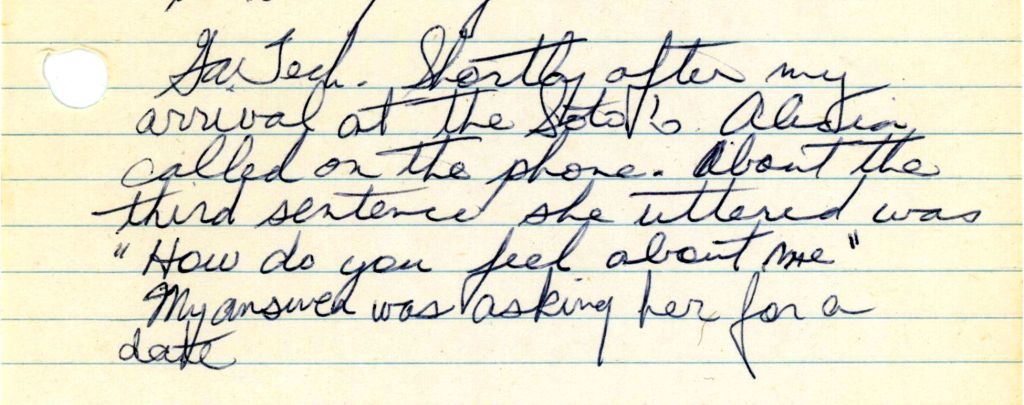 Ga. Tech. Shortly after my
arrival at the Soto's Alicia
called on the phone. About the
third sentence she uttered was
"How do you feel about me"
My answer was asking her for a
date